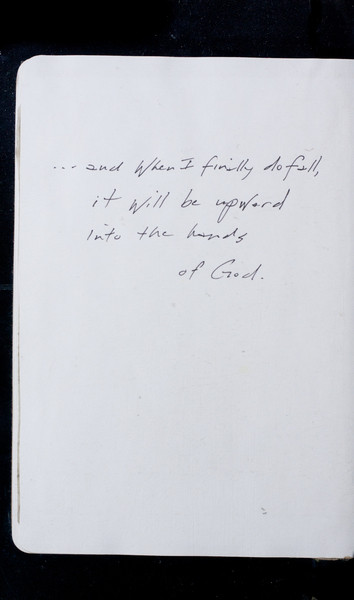 ... and When I finally do fall,
it will be upward
into the hands
of God.